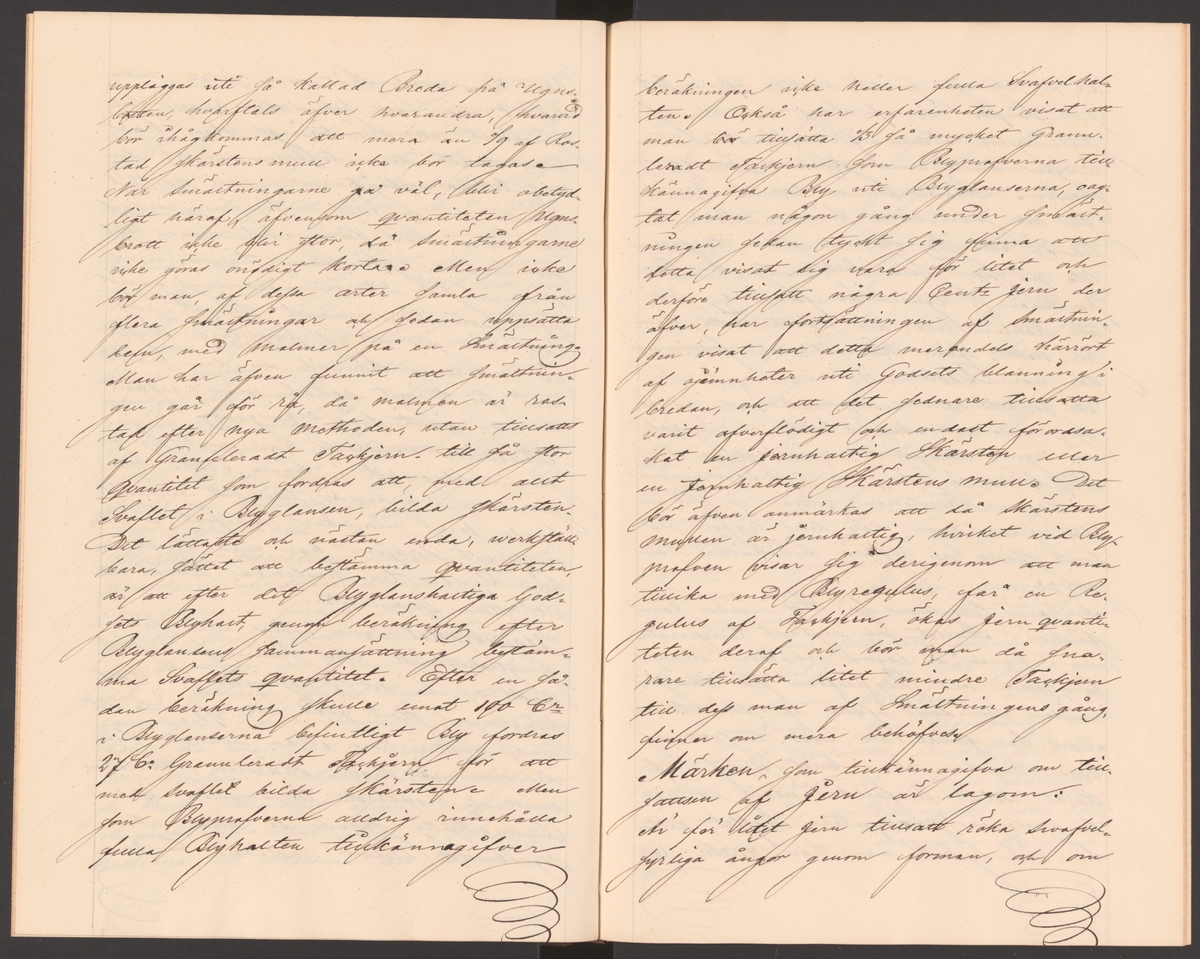 uppläggas uti så kallad Breda på Ugns-
botten, hvarftals öfver hvarandra, hvarvid
bör ihågkommas att mera än 1/9 af Ros-
tad skärstensmull icke bör tagas.
När smältningarne gå väl, blir obetyd-
ligt häraf, äfvensom qvantiteten Ugns-
brott icke blir stor, då Smältningarne
icke göras onödigt korta. Men icke
bör man, af dessa arter samla från
flera smältningar och sedan uppsätta
dem, med malmer på en Smältning.
Man har äfven funnit att smältnin-
gen går för rå, då malmen är ros-
tad efter nya methoden, utan tillsatts
af Granuleradt Tackjern till så stor
qvantitet som fordras att, med allt
Svaflet i Blyglansen, bilda skärsten.
Det lättaste och nästan enda, werkställ-
bara, sättet att bestämma qvantiteten,
är att efter det Blyglanshaltiga God-
sets Blyhalt, genom beräkning efter
Blyglansens sammansättning bestäm-
ma Svaflets qvantitet. Efter en så-
dan beräkning skulle emot 100 Cr
i Blyglanserna befintligt Bly fordras
27 Cr Granuleradt Tackjern för att
med svaflet bilda skärsten. Men
som Blyprofverna aldrig innehålla
fulla Blyhalten tillkännagifver
beräkningen icke heller fulla Svafvelhal-
ten. Också har erfarenheten visat att
man bör tillsätta 1/3 så mycket Granu-
leradt Tackjern som Blyprofverna till-
kännagifva Bly uti Blyglanserna, oag-
tat man någon gång under smält-
ningen sedan tyckt sig finna att
detta visat sig vara för litet och
derföre tillsatt några Cent: Jern der
öfver, har fortsättningen af Smältnin-
gen visat att detta merendels härrört
af ojämnheter uti Godsets blanning i
bredan, och att det sednare tillsatta
varit öfverflödigt och endast förorsa-
kat en jernhaltig Skärsten eller
en jernhaltig Skärstens mull. Det
bör äfven anmärkas att då Skärstens
mullen är jernhaltig, hvilket vid Bly-
profven visar sig derigenom att man
tillika med Blyregulus, får en Re-
gulus af Tackjern, ökas Jern qvanti-
teten deraf och bör man då sna-
rare tillsätta litet mindre Tackjern
till dess man af Smältningens gång,
finner om mera behöfves.
Märken, som tillkännagifva om till-
sattsen af Jern är lagom:
Är för litet Jern tillsatt röka svafvel-
syrliga ångor genom forman, och om